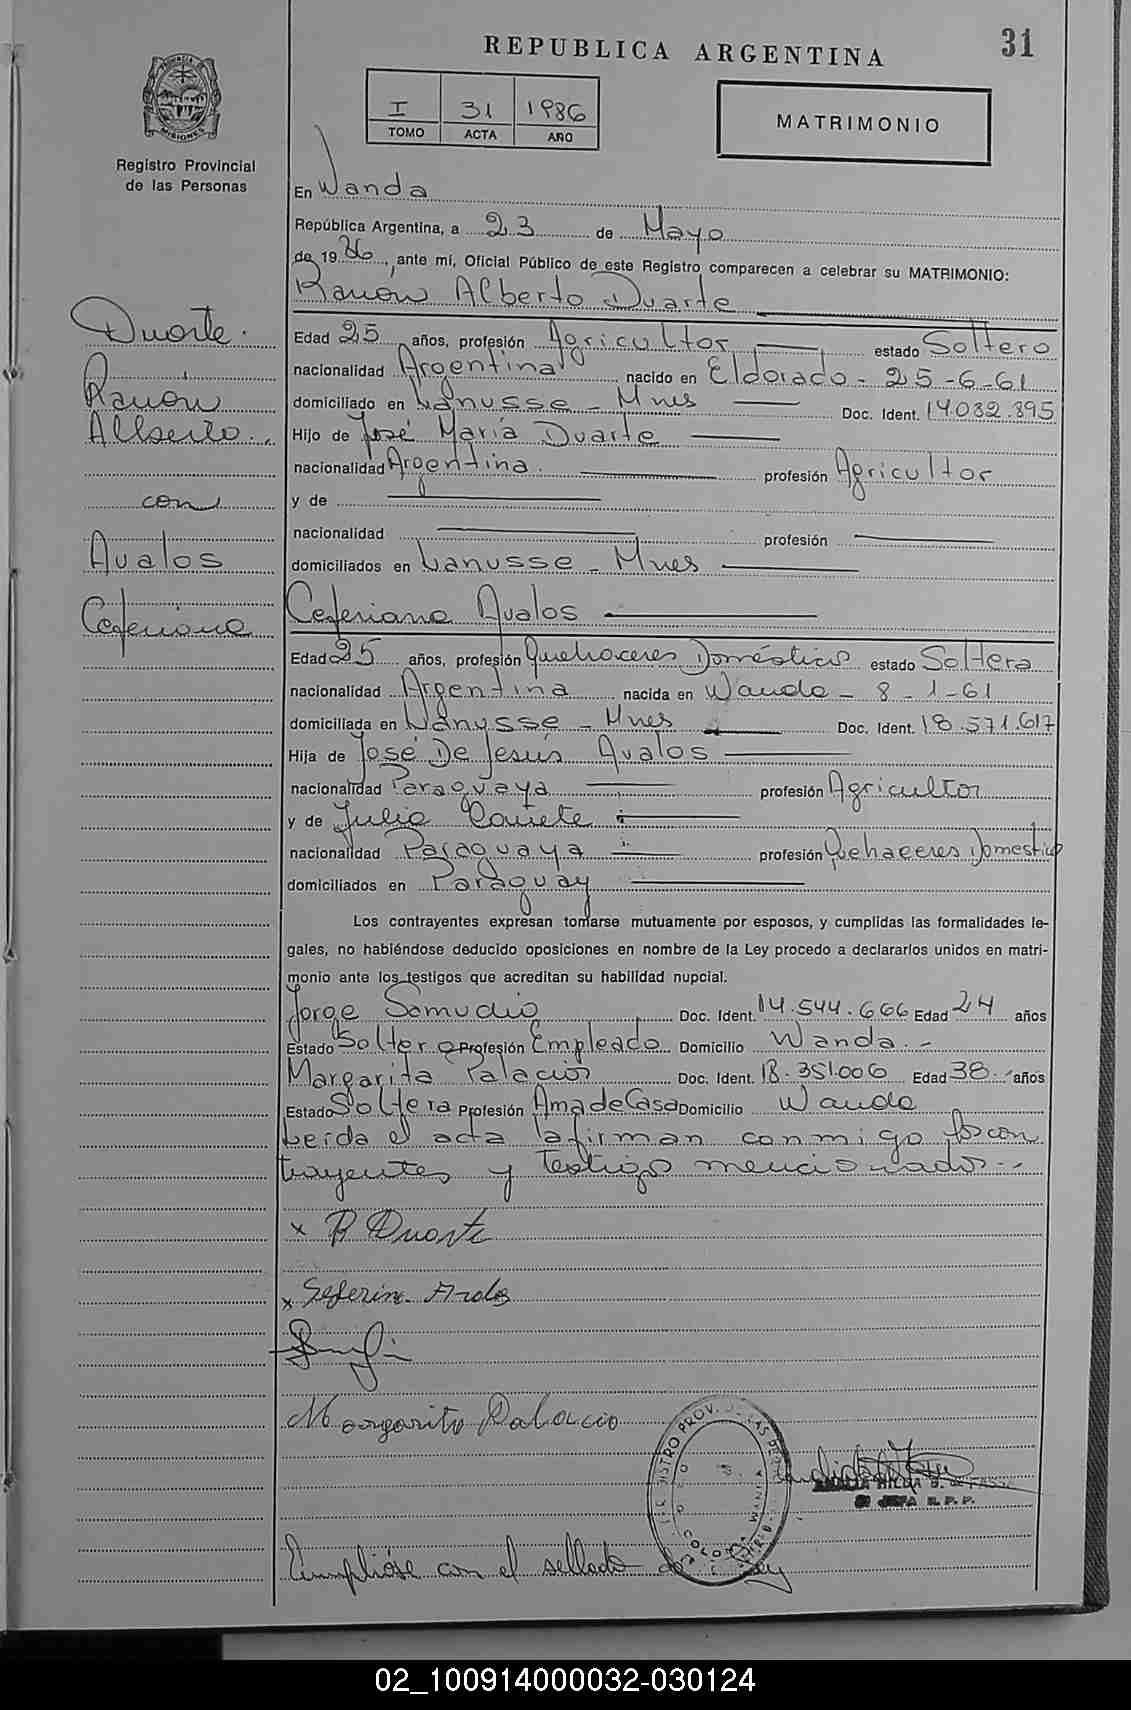 REPUBLICA ARGENTINA
31
I 31 1986
TOMO ACTA AÑO
MATRIMONIO
MISIONES
Registro Provincial
de las Personas
En Wanda
República Argentina, a 23 de Mayo
de 1986, ante mí, Oficial Público de este Registro comparecen a celebrar su MATRIMONIO:
Ramón Alberto Duarte
Duarte.
Ramón
Alberto.
con
Avalos
Ceferiana
Edad 25 años, profesión Agricultor estado Soltero
nacionalidad Argentina nacido en Eldorado - 25-6-61
domiciliado en Lanusse - Mnes Doc. Ident. 14.032.895
Hijo de José María Duarte
nacionalidad Argentina. profesión Agricultor
y de
nacionalidad profesión
domiciliados en Lanusse - Mnes
Ceferiana Avalos
Edad 25 años, profesión Quehaceres Domésticos estado Soltera
nacionalidad Argentina nacida en Wanda - 8-1-61
domiciliada en Lanusse - Mnes Doc. Ident. 18.571.617
Hija de José De Jesús Avalos
nacionalidad Paraguaya profesión Agricultor
y de Julia Cañete
nacionalidad Paraguaya profesión Quehaceres Domestico
domiciliados en Paraguay
Los contrayentes expresan tomarse mutuamente por esposos, y cumplidas las formalidades le-
gales, no habiéndose deducido oposiciones en nombre de la Ley procedo a declararlos unidos en matri-
monio ante los testigos que acreditan su habilidad nupcial.
Jorge Samudio Doc. Ident. 14.544.666 Edad 24 años
Estado Soltero Profesión Empleado Domicilio Wanda.-
Margarita Palacios Doc. Ident. 13.351.006 Edad 38 años
Estado Soltera Profesión Ama de Casa Domicilio Wanda
Leída el acta la firman conmigo los con
trayentes y testigo mencionados.-
x R Duarte
x Seferina
Margarita Palacio
Cumplióse con el sellado de Ley
02_100914000032-030124